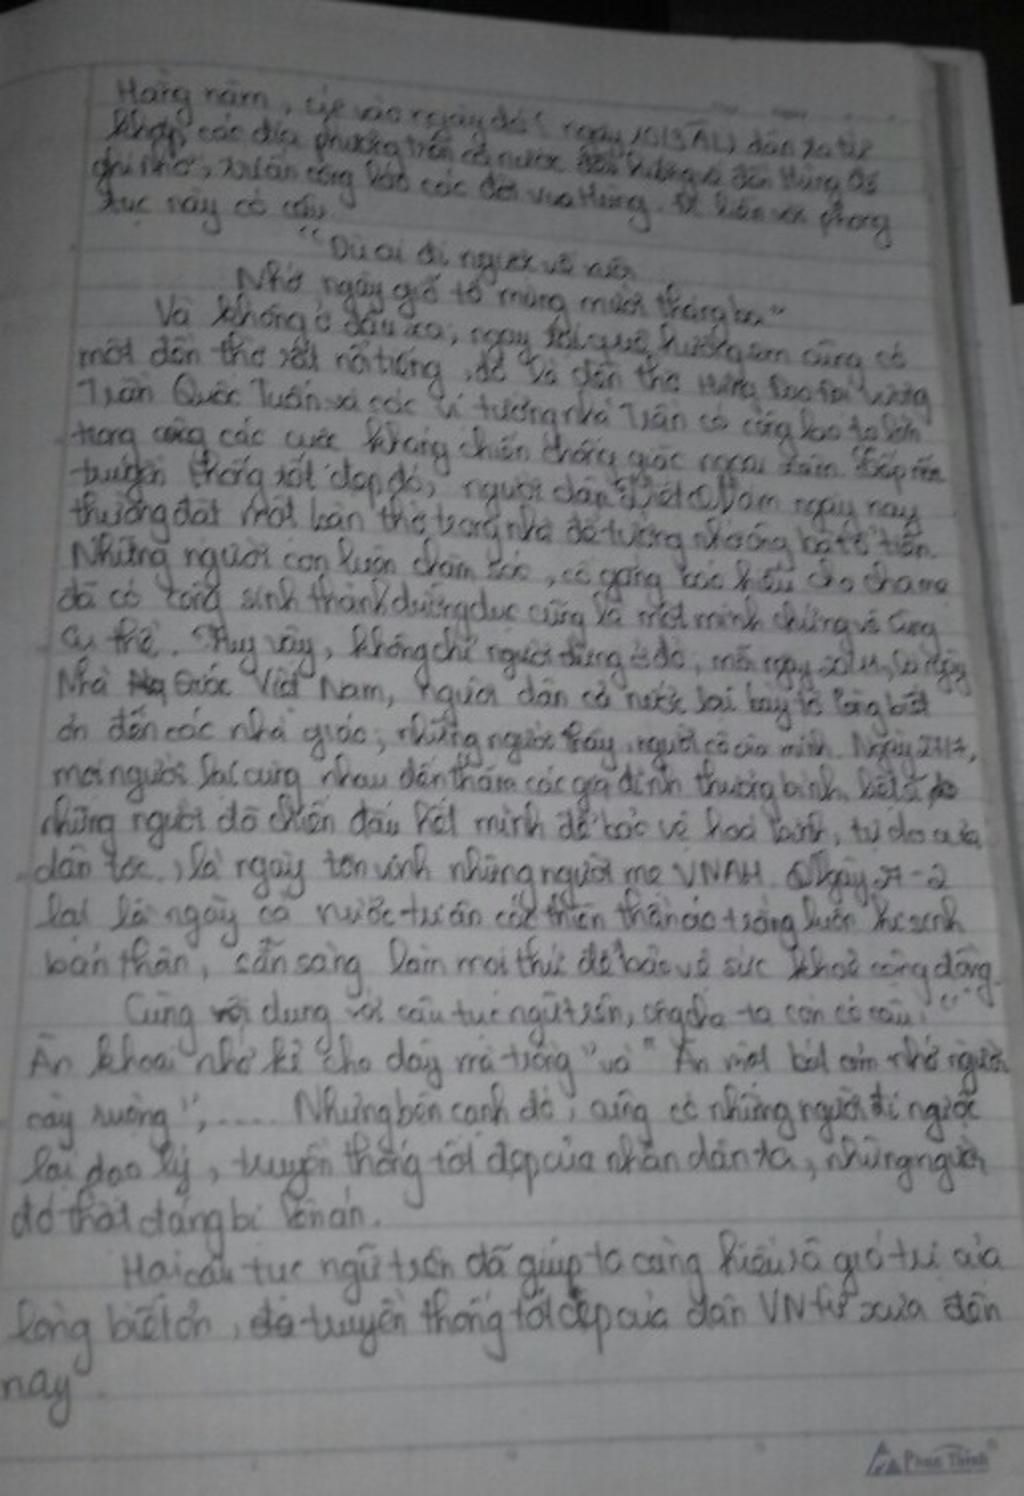 Hằng năm, cứ vào ngày đó (ngày 10/3 ÂL) dân ta từ
khắp các địa phương trên cả nước hướng về đền Hùng để
ghi nhớ, tri ân công lao các đời vua Hùng. phong
tục này có câu
"Dù ai đi ngược về xuôi
Nhớ ngày giỗ tổ mùng mười tháng ba"
Và không ở đâu xa, ngay tại quê hương em cũng có
một đền thờ rất nổi tiếng, đó là đền thờ Hưng Đạo Đại Vương
Trần Quốc Tuấn và các vị tướng nhà Trần có công lao to lớn
trong công các cuộc kháng chiến chống giặc ngoại xâm. Tiếp nối
truyền thống tốt đẹp đó, người dân Việt Nam ngày nay
thường đặt một bàn thờ trong nhà để tưởng nhớ ông bà tổ tiên.
Những người con luôn chăm sóc, cố gắng báo hiếu cho cha mẹ
đã có công sinh thành dưỡng dục cũng là một minh chứng vô cùng
cụ thể. Tuy vậy, không chỉ người dừng ở đó, mỗi ngày 20/11, là ngày
Nhà Quốc Việt Nam, người dân cả nước lại bày tỏ lòng biết
ơn đến các nhà giáo, những người thầy, người cô của mình. Ngày 27/7,
mọi người lại cùng nhau đến thăm các gia đình thương binh, liệt sĩ
những người đã chiến đấu hết mình để bảo vệ hoà bình, tự do của
dân tộc, là ngày tôn vinh những người mẹ VNAH. Ngày 27-2
lại là ngày cả nước tri ân các thiên thần áo trắng luôn hi sinh
bản thân, sẵn sàng làm mọi thứ để bảo vệ sức khoẻ cộng đồng.
Cùng nội dung với câu tục ngữ trên, ông cha ta còn có câu: "
Ăn khoai nhớ kẻ cho dây mà trồng" và "Ăn một bát cơm nhớ người
cày ruộng",..... Nhưng bên cạnh đó, cũng có những người đi ngược
lại đạo lý, truyền thống tốt đẹp của nhân dân ta, những người
đó thật đáng bị lên án.
Hai câu tục ngữ trên đã giúp ta càng hiểu rõ giá trị của
lòng biết ơn, truyền thống tốt đẹp của dân VN từ xưa đến
nay.
Phan Thịnh